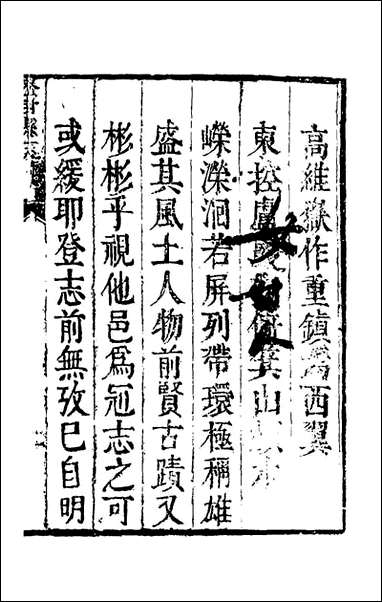 高維嶽作重鎮爲西翼
東控盧箕山
嶸濚洄若屏列帶環極稱雄
盛其風土人物前賢古蹟又
彬彬乎視他邑爲冠志之可
或緩耶登志前無攷已自明
登封縣志